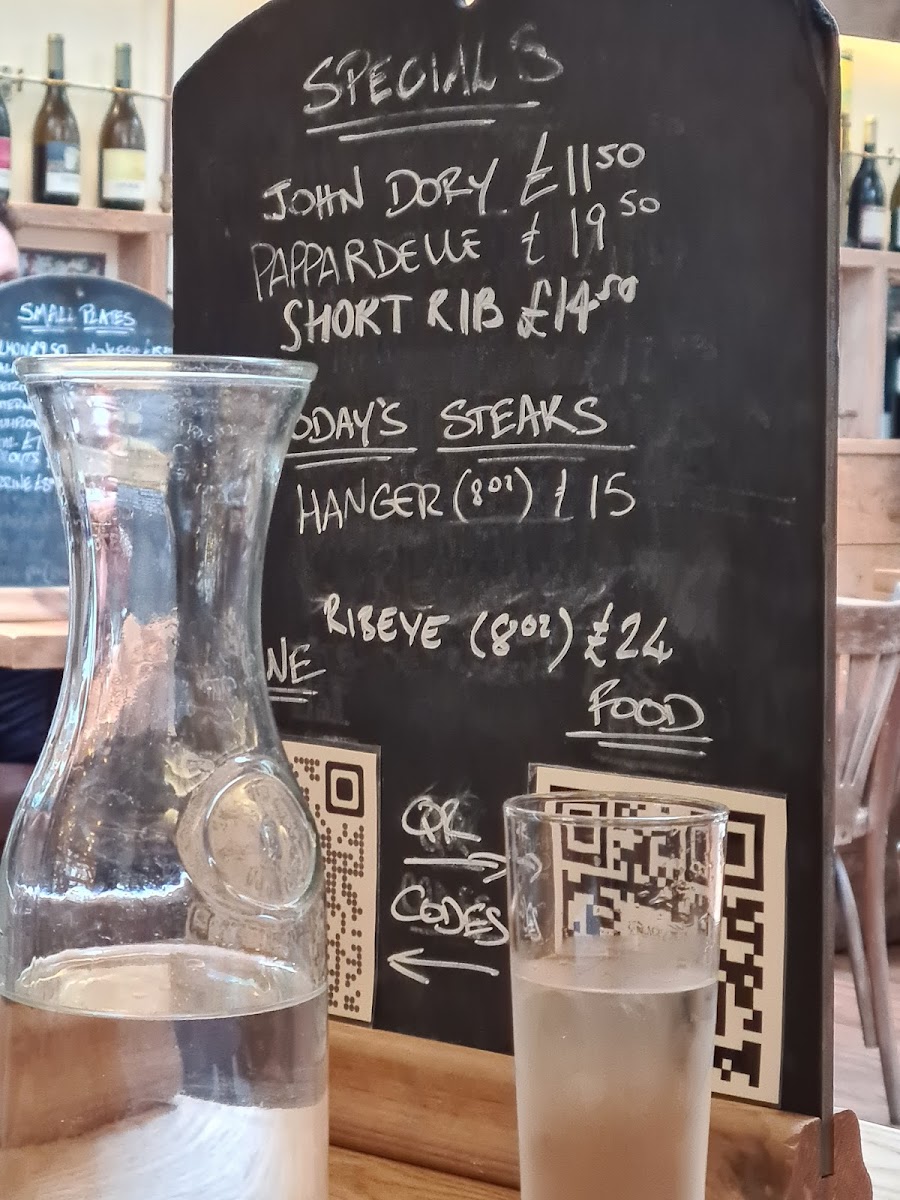 SPECIALS
JOHN DORY £11.50
PAPPARDELLE £19.50
SHORT RIB £14.50
TODAY'S STEAKS
HANGER (8oz) £15
RIBEYE (8oz) £24
FOOD
QR
CODES
SMALL PLATES